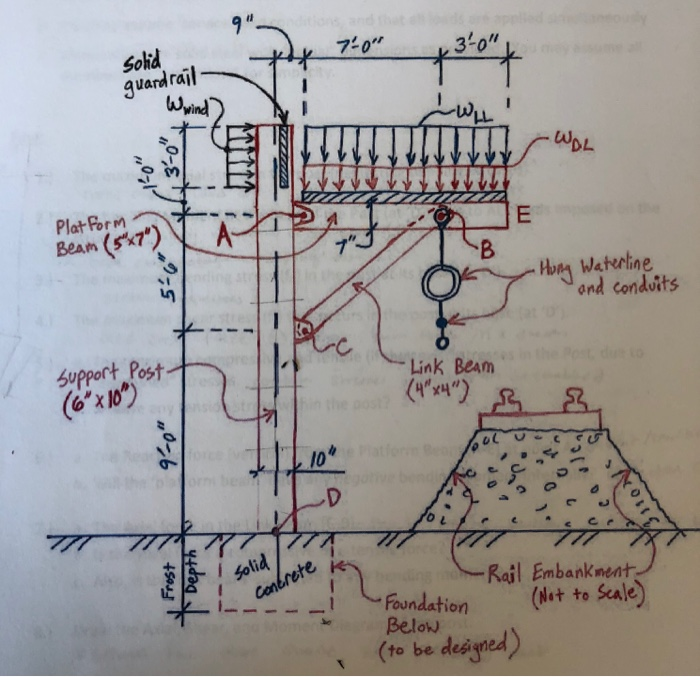 9"
7'-0"
3'-0"
Solid
guardrail
Wwind
WLL
WDL
3'-0"
1'-0"
Platform
Beam (5"x7")
A
E
7"
B
5'-6"
Hung Waterline
and conduits
C
Link Beam
(4"x4")
Support Post
(6"x10")
9'-0"
10"
D
Frost
Depth
Solid
concrete
Rail Embankment
(Not to Scale)
Foundation
Below
(to be designed)